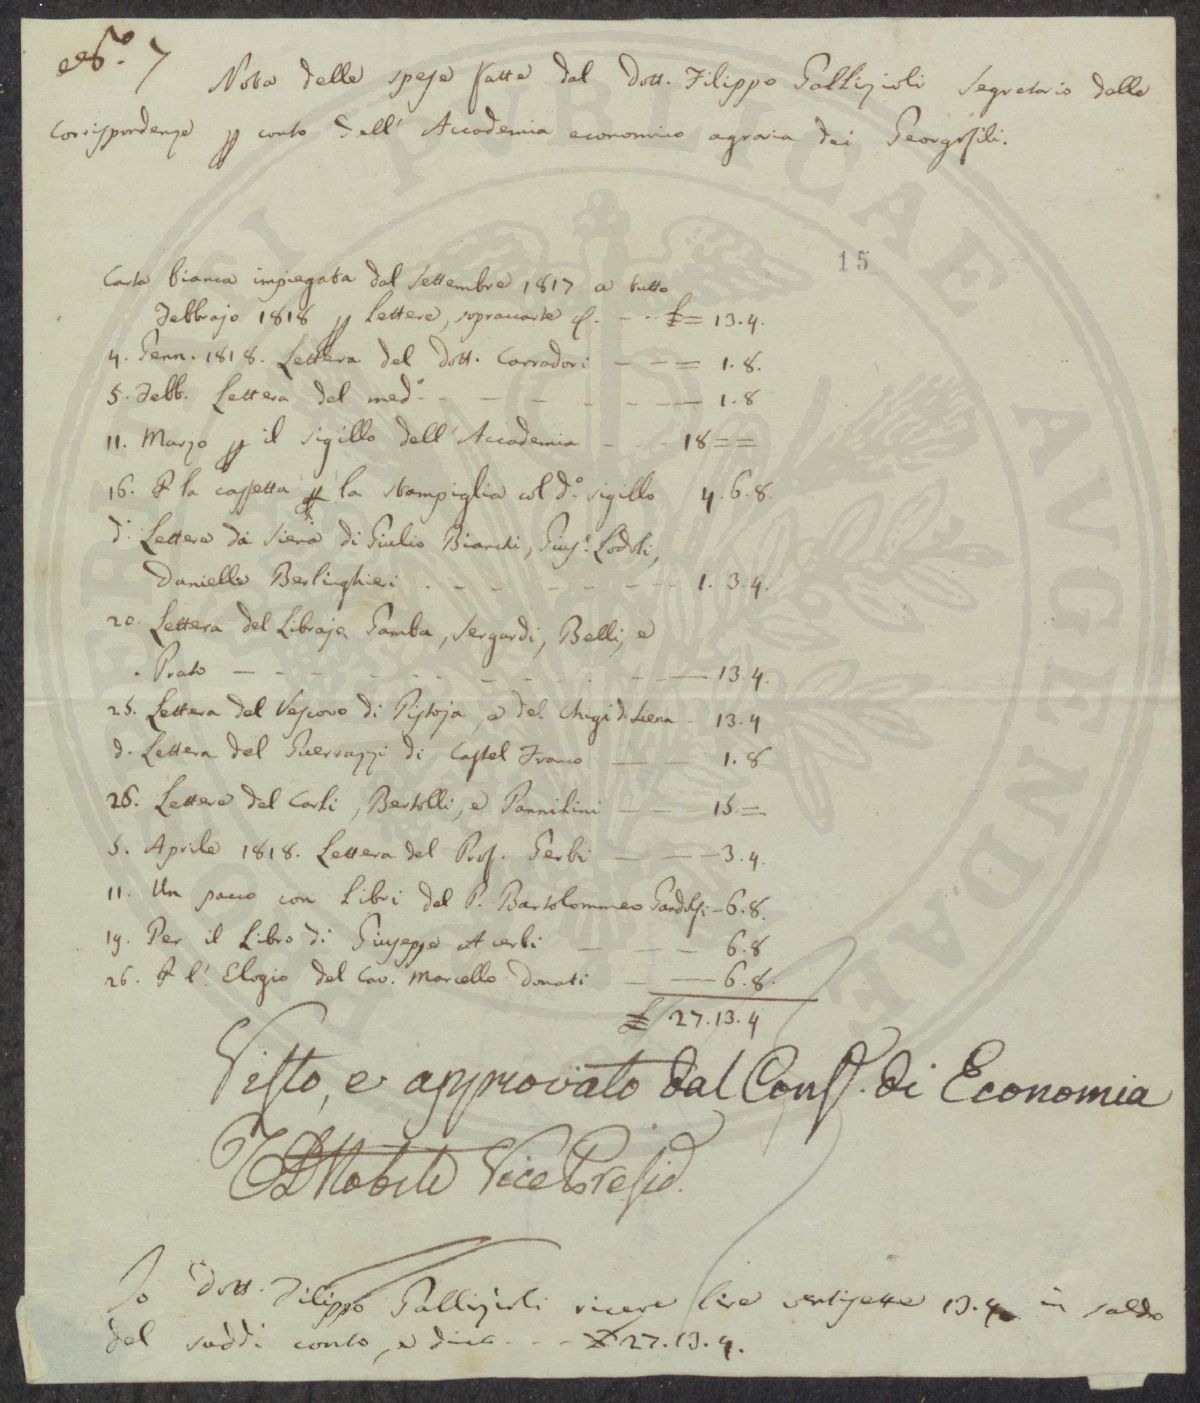 N.º 7
Nota delle spese fatte dal Dott. Filippo Gallizioli Segretario delle
Corrispondenze p conto dell' Accademia economico agraria dei Georgofili.
15
Carta bianca impiegata dal Settembre 1817 a tutto
Febbrajo 1818 p Lettere, sopraccarte &. - - - £ = 13.4.
4. Genn. 1818. Lettera del Dott. Carradori - - = 1.8.
5. Febb. Lettera del med.º - - - - - - - 1.8
11. Marzo p il sigillo dell' Accademia - - - 18 = =
16. P la cassetta p la stampiglia col d.º sigillo 4.6.8.
d.º Lettere da Siena di Giulio Bianchi, Gius.e Lodoli,
Daniello Berlinghieri - - - - - - - 1.3.4.
20. Lettera del Librajo Gamba, Sergardi, Belli, e
Prato - - - - - - - - - - 13.4.
25. Lettera del Vescovo di Pistoja, e del Chigi di Siena - 13.4
d.º Lettera del Guerrazzi di Castel Franco - - 1.8
28. Lettere del Carli, Bertolli, e Pannilini - - - 15. =
5. Aprile 1818. Lettera del Prof. Gerbi - - - 3.4.
11. Un pacco con Libri del P. Bartolommeo Gandolfi - 6.8.
19. Per il Libro di Giuseppe Acerbi - - - 6.8
26. P l' Elogio del Cav. Marcello Donati - - 6.8.
£ 27.13.4
Visto, e approvato dal Cons. di Economia
Nobili Vice Presid.
Io Dott. Filippo Gallizioli ricevei lire ventisette 13.4 in saldo
del sudd.º conto, e dico - - - £ 27.13.4.